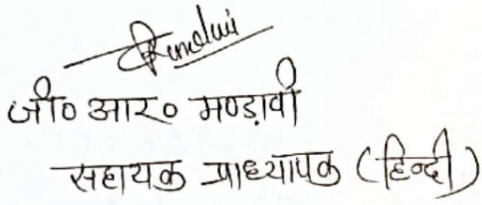 जी० आर० मण्डावी
सहायक प्राध्यापक (हिन्दी)